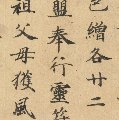 色繒各廿二
盟奉行靈符
祖父母獲風